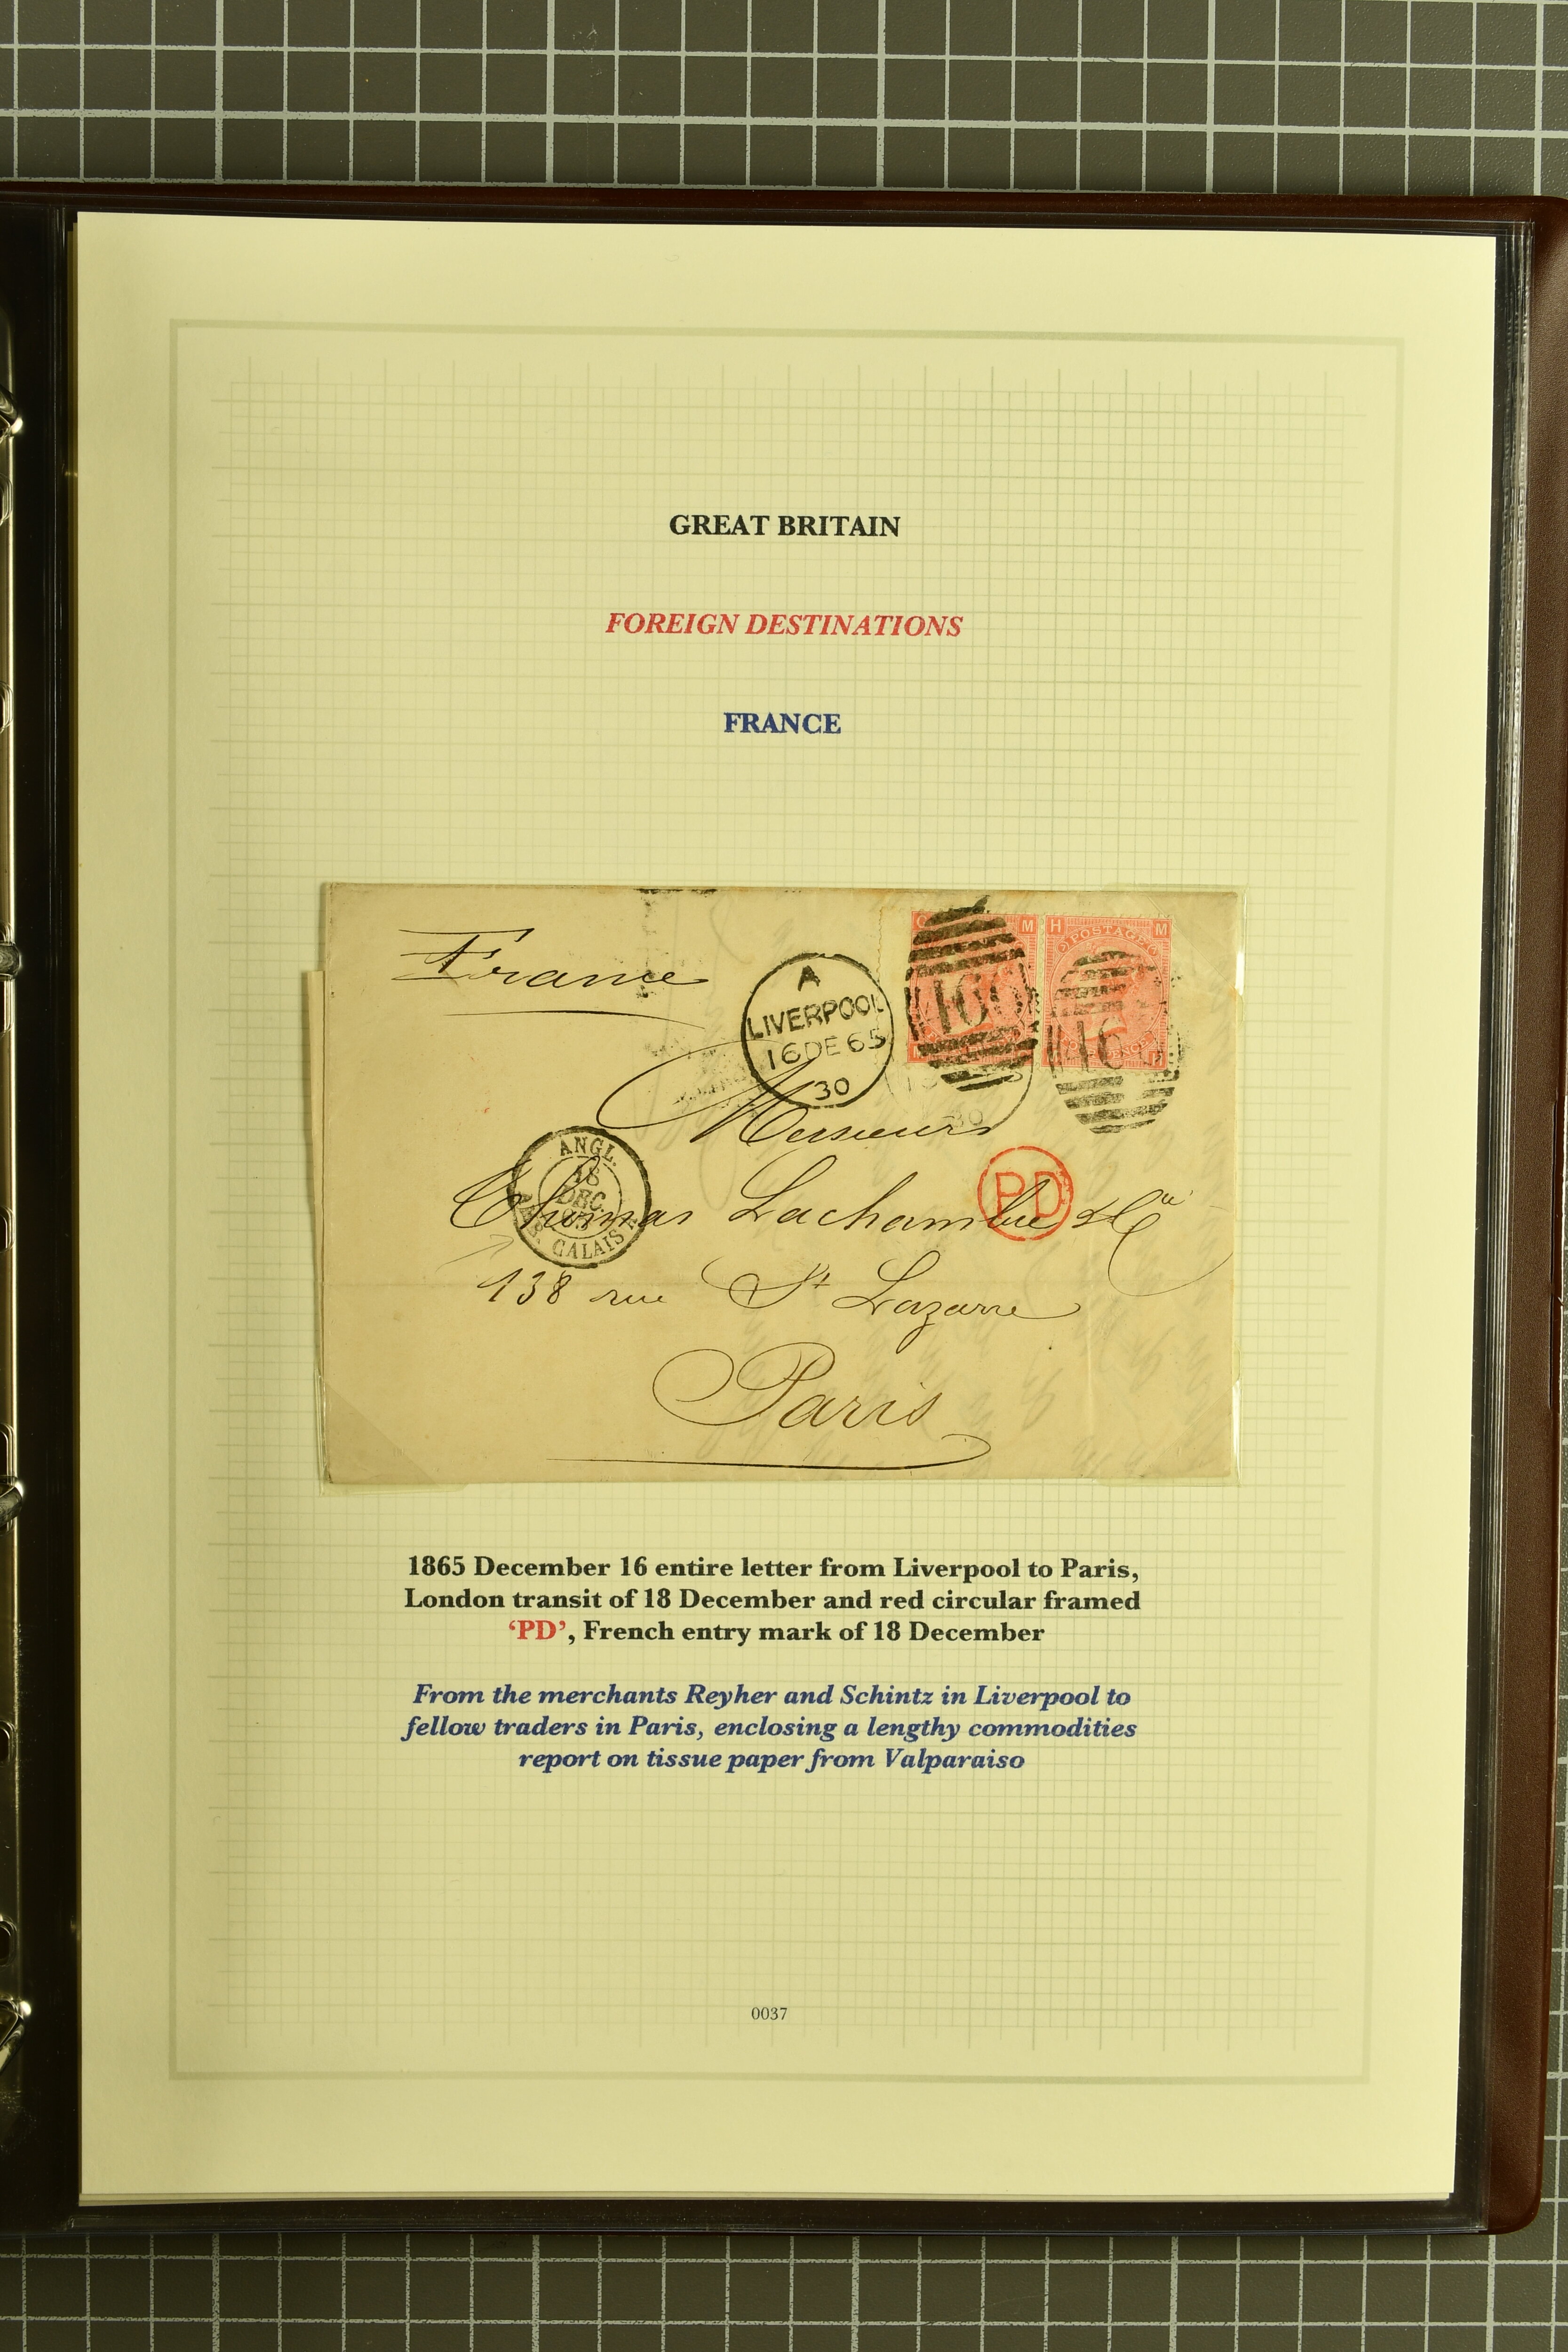 GREAT BRITAIN
FOREIGN DESTINATIONS
FRANCE
France
A
LIVERPOOL
16 DE 65
30
M
H
M
POSTAGE
466
Messieurs
ANGL.
18
DEC.
CALAIS
PD
Thomas Lachambre & Cie
138 rue St Lazarre
Paris
1865 December 16 entire letter from Liverpool to Paris,
London transit of 18 December and red circular framed
‘PD’, French entry mark of 18 December
From the merchants Reyher and Schintz in Liverpool to
fellow traders in Paris, enclosing a lengthy commodities
report on tissue paper from Valparaiso
0037